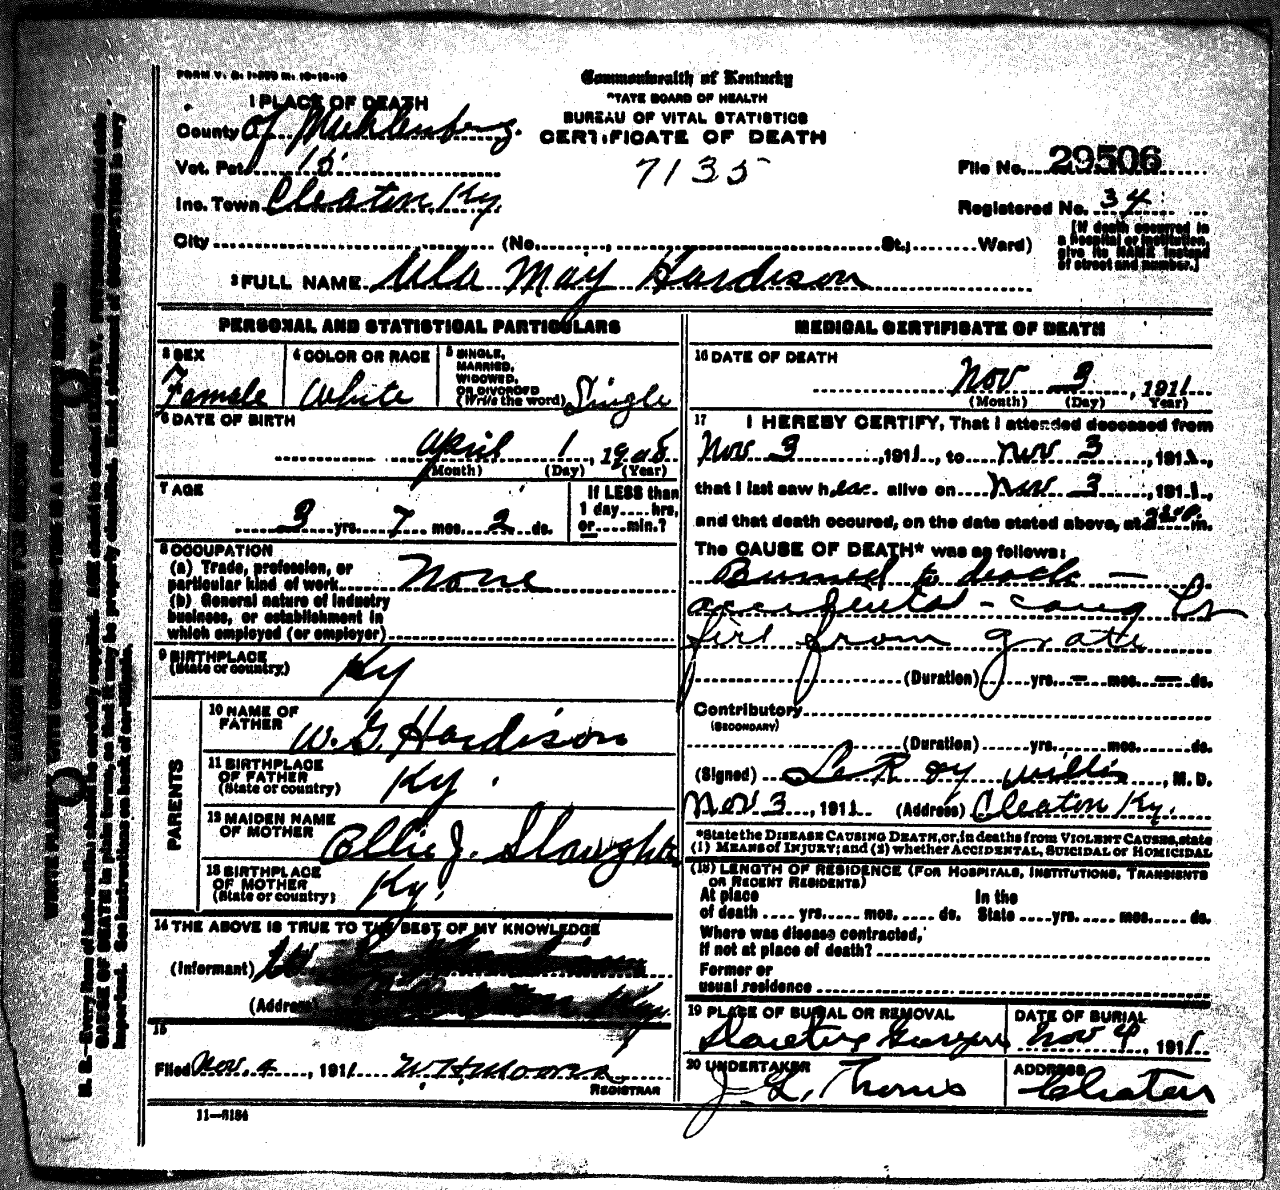 FORM V. S. 1-
Commonwealth of Kentucky
STATE BOARD OF HEALTH
BUREAU OF VITAL STATISTICS
CERTIFICATE OF DEATH
7135
1 PLACE OF DEATH
County of Muhlenberg.
Vot. Pct. 15
Inc. Town Cleaton Ky
File No. 29506
Registered No. 34
City (No. , St.; Ward)
[If death occurred in
a hospital or institution,
give its NAME instead
of street and number.]
2 FULL NAME Ula May Hardison
PERSONAL AND STATISTICAL PARTICULARS
3 SEX
Female
4 COLOR OR RACE
White
5 SINGLE,
MARRIED,
WIDOWED,
OR DIVORCED
(Write the word) Single
6 DATE OF BIRTH
April 1, 1908
(Month) (Day) (Year)
7 AGE
3 yrs. 7 mos. 2 ds.
If LESS than
1 day hrs.
or min.?
8 OCCUPATION
(a) Trade, profession, or
particular kind of work None
(b) General nature of industry
business, or establishment in
which employed (or employer)
9 BIRTHPLACE
(State or country) Ky
PARENTS
10 NAME OF
FATHER W. G. Hardison
11 BIRTHPLACE
OF FATHER
(State or country) Ky.
12 MAIDEN NAME
OF MOTHER Ollie J. Slaughter
13 BIRTHPLACE
OF MOTHER
(State or country) Ky.
14 THE ABOVE IS TRUE TO THE BEST OF MY KNOWLEDGE
(Informant) W
(Address Ky.
15
Filed Nov. 4, 1911 W. H. Moore
REGISTRAR
11—5184
MEDICAL CERTIFICATE OF DEATH
16 DATE OF DEATH
Nov 3, 1911
(Month) (Day) Year)
17 I HEREBY CERTIFY, That I attended deceased from
Nov 3, 1911, to Nov 3, 1911,
that I last saw her alive on Nov 3, 1911,
and that death occured, on the date stated above, at m.
The CAUSE OF DEATH* was as follows:
Burned to death —
accidental - caught
fire from grate
(Duration) yrs. — mos. — ds.
Contributory
(SECONDARY)
(Duration) yrs. mos. ds.
(Signed) Le Roy Willis, M. D.
Nov 3, 1911 (Address) Cleaton Ky.
*State the DISEASE CAUSING DEATH, or, in deaths from VIOLENT CAUSES, state
(1) MEANS of INJURY; and (2) whether ACCIDENTAL, SUICIDAL or HOMICIDAL
(18) LENGTH OF RESIDENCE (FOR HOSPITALS, INSTITUTIONS, TRANSIENTS
OR RECENT RESIDENTS)
At place
of death yrs. mos. ds.
In the
State yrs. mos. ds.
Where was disease contracted,
If not at place of death?
Former or
usual residence
19 PLACE OF BURIAL OR REMOVAL
DATE OF BURIAL
Nov 4, 1911
20 UNDERTAKER
J. L. Thomis
ADDRESS
Cleaton